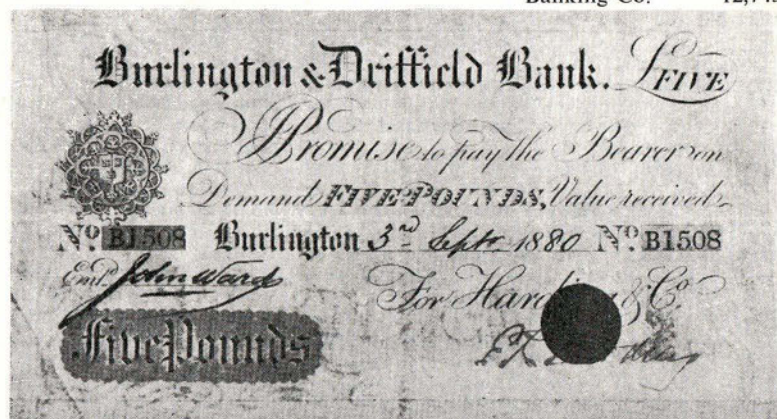 Banking Co.
Burlington & Driffield Bank. £FIVE
I Promise to pay the Bearer on
Demand FIVE POUNDS, Value received
No. B1508 Burlington 3rd Septr. 1880 No. B1508
Entd. John Ward For & Co.
Five Pounds